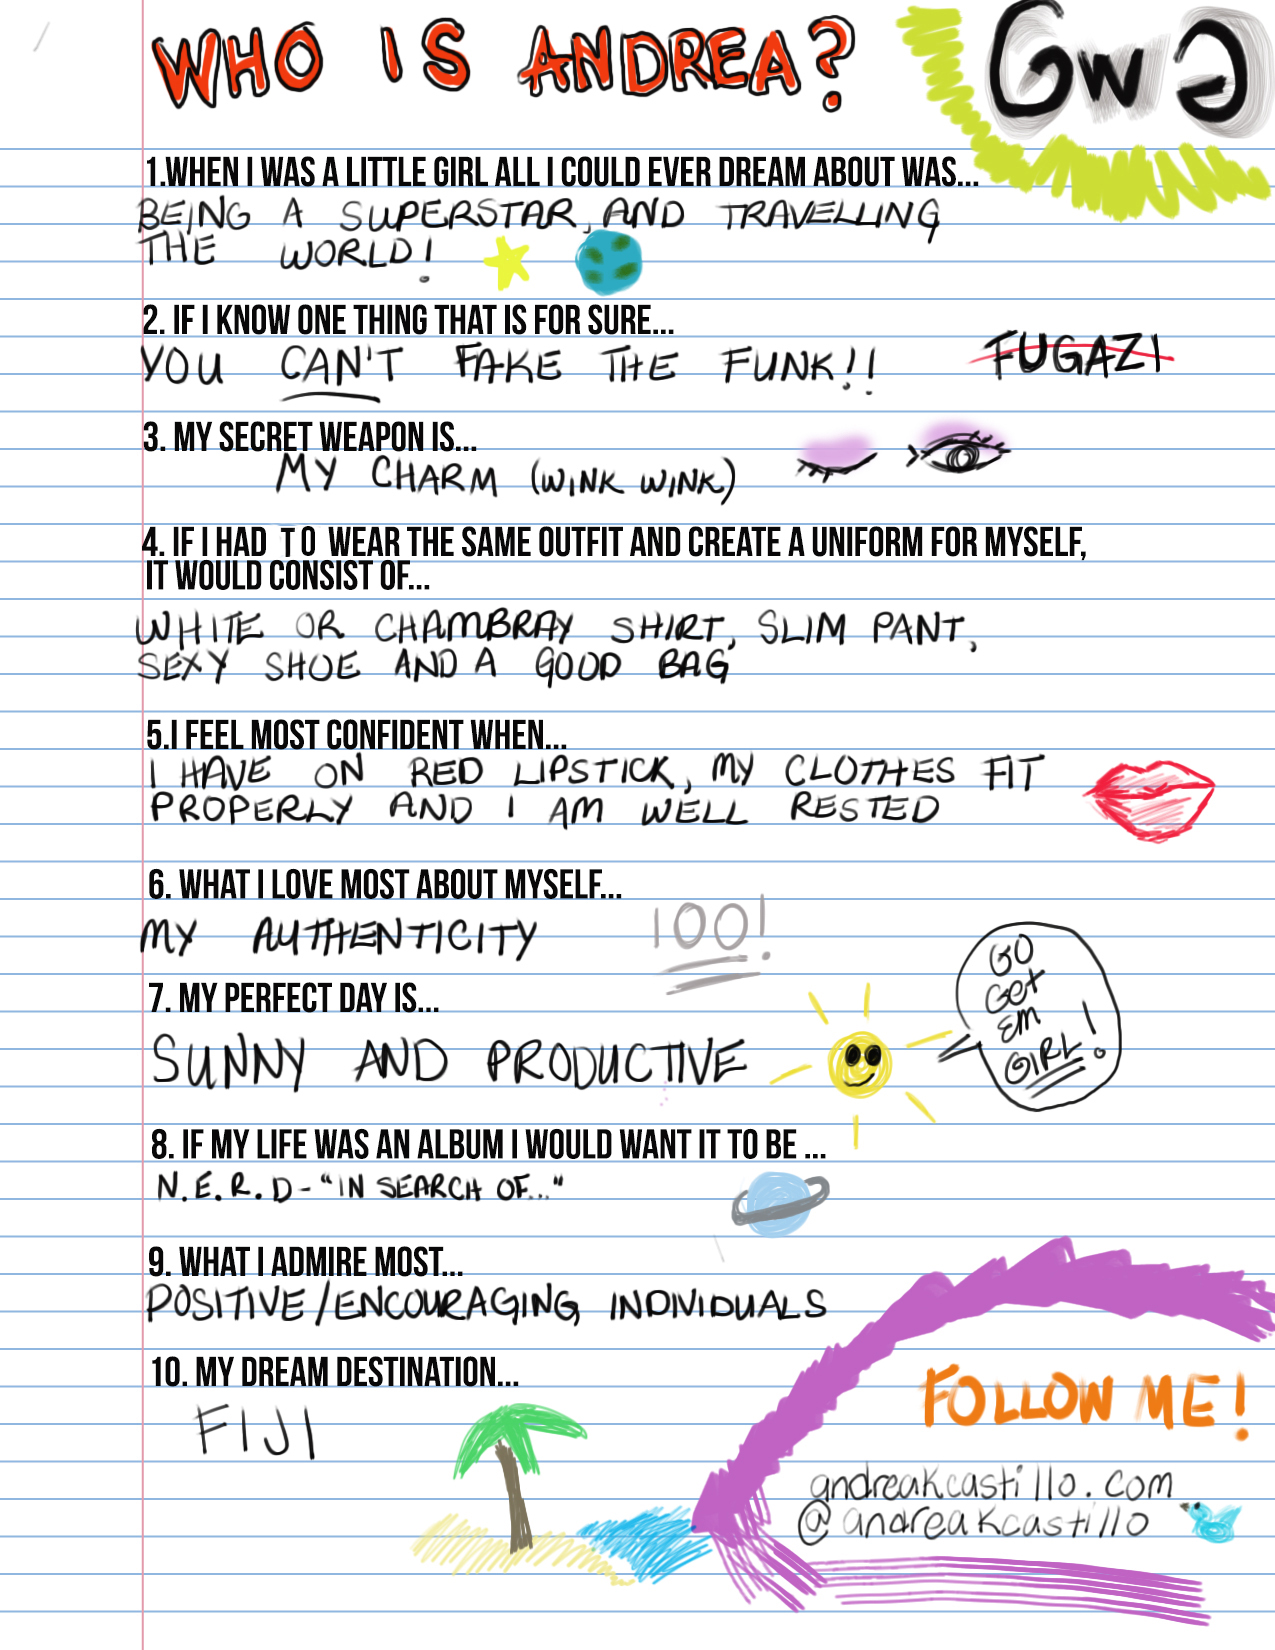 WHO IS ANDREA?
GWG
1.WHEN I WAS A LITTLE GIRL ALL I COULD EVER DREAM ABOUT WAS...
BEING A SUPERSTAR, AND TRAVELLING
THE WORLD!
2. IF I KNOW ONE THING THAT IS FOR SURE...
YOU CAN'T FAKE THE FUNK!!
FUGAZI
3. MY SECRET WEAPON IS...
MY CHARM (WINK WINK)
4. IF I HAD TO WEAR THE SAME OUTFIT AND CREATE A UNIFORM FOR MYSELF,
IT WOULD CONSIST OF...
WHITE OR CHAMBRAY SHIRT, SLIM PANT,
SEXY SHOE AND A GOOD BAG
5.I FEEL MOST CONFIDENT WHEN...
I HAVE ON RED LIPSTICK, MY CLOTHES FIT
PROPERLY AND I AM WELL RESTED
6. WHAT I LOVE MOST ABOUT MYSELF...
MY AUTHENTICITY
100!
7. MY PERFECT DAY IS...
SUNNY AND PRODUCTIVE
GO
GET
EM
GIRL!
8. IF MY LIFE WAS AN ALBUM I WOULD WANT IT TO BE ...
N.E.R.D - "IN SEARCH OF..."
9. WHAT I ADMIRE MOST...
POSITIVE/ENCOURAGING INDIVIDUALS
10. MY DREAM DESTINATION...
FIJI
FOLLOW ME!
andreakcastillo.com
@andreakcastillo